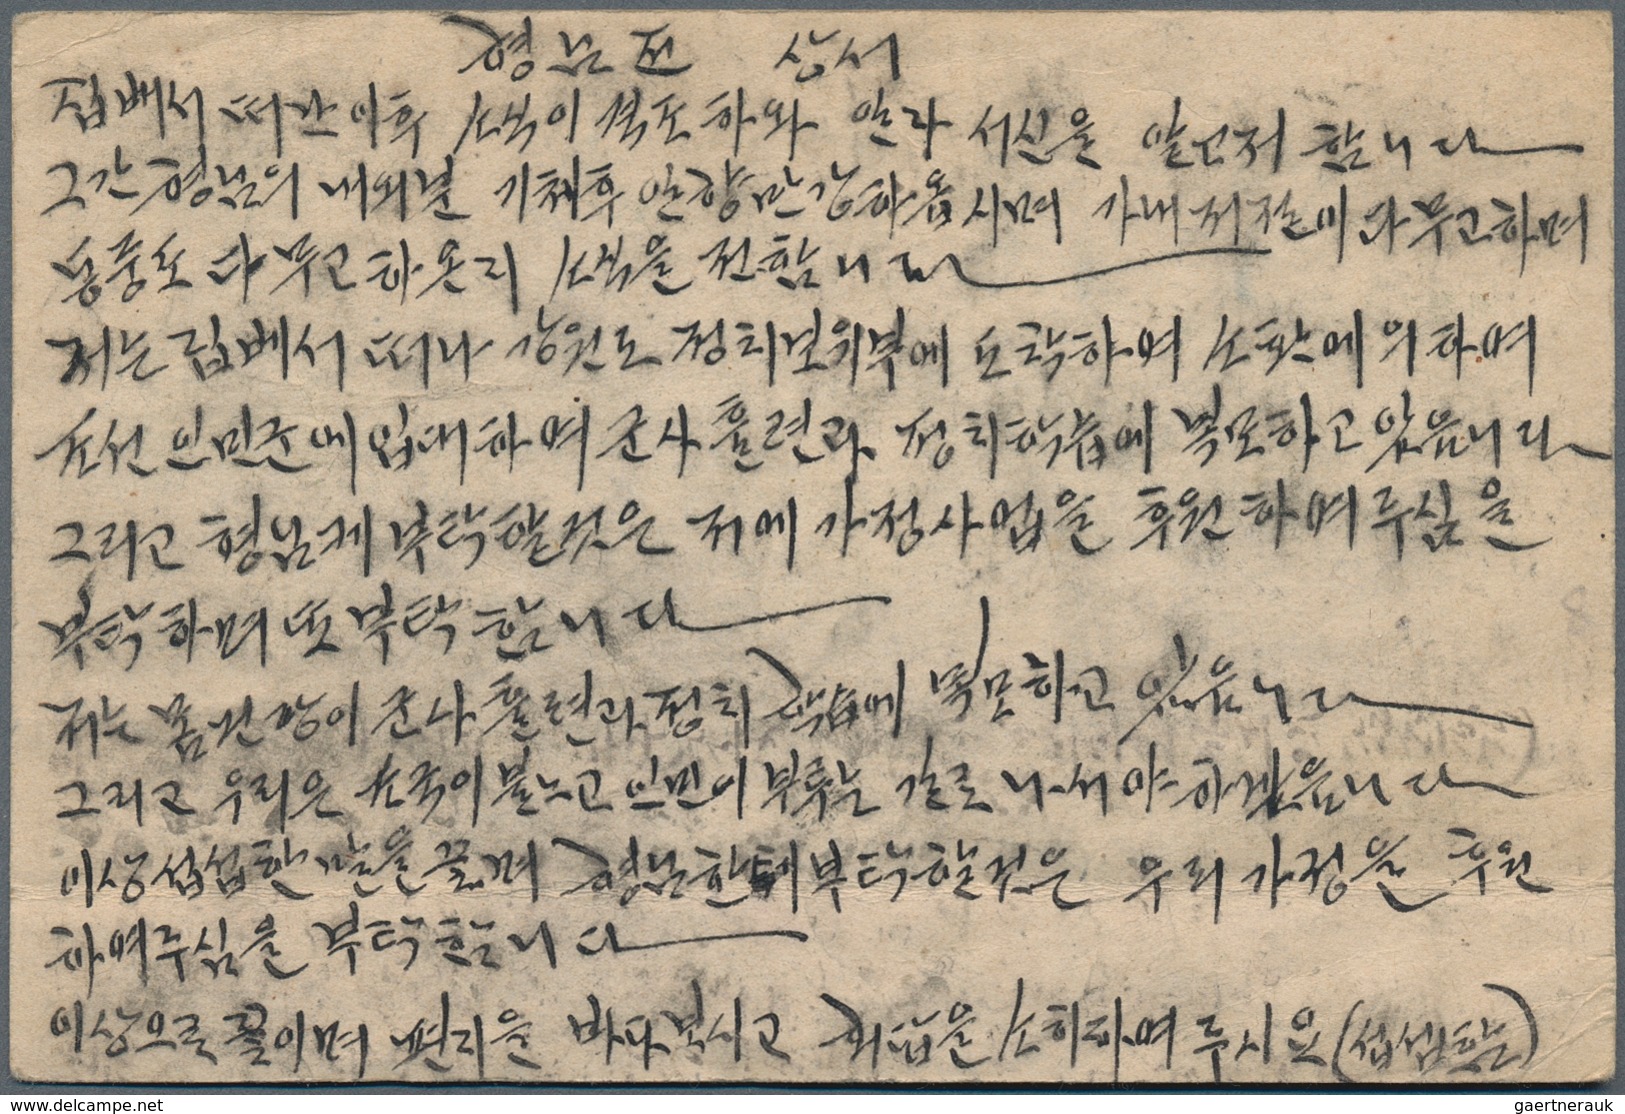 형님전 상서
집에서 떠난이후 소식이 격조하와 안라 서신을 알고저 함니다
그간 형님의 내외분 기체후 안향만강하옵시며 가내저절이 다무고하며
동중도 다 무고하온지 소식을 전함니다
저는 집에서 떠나 강원도 정치보위부에 도착하여 소환에 의하여
조선 인민군에 입대하여 군사 훌련과 정치학습에 복무하고 있읍니다
그리고 형님께 부탁할것은 저에 가정사업을 후원하여주심을
부탁하며 또 부탁 함니다
저는 몸 건강이 군사 훌련과 정치 학습에 복무하고 있읍니다
그리고 우리은 조국이 불느고 인민이 부루는 길로 나서야 하겠읍니다
이상 섭섭한 말을 끝며 형님한테 부탁할것은 우리 가정을 후원
하여주심을 부탁함니다
이상으로 끝이며 편지을 바다보시고 회답을 소히하여 주시요 (섭섭함)
www.delcampe.net
gaertnerauk